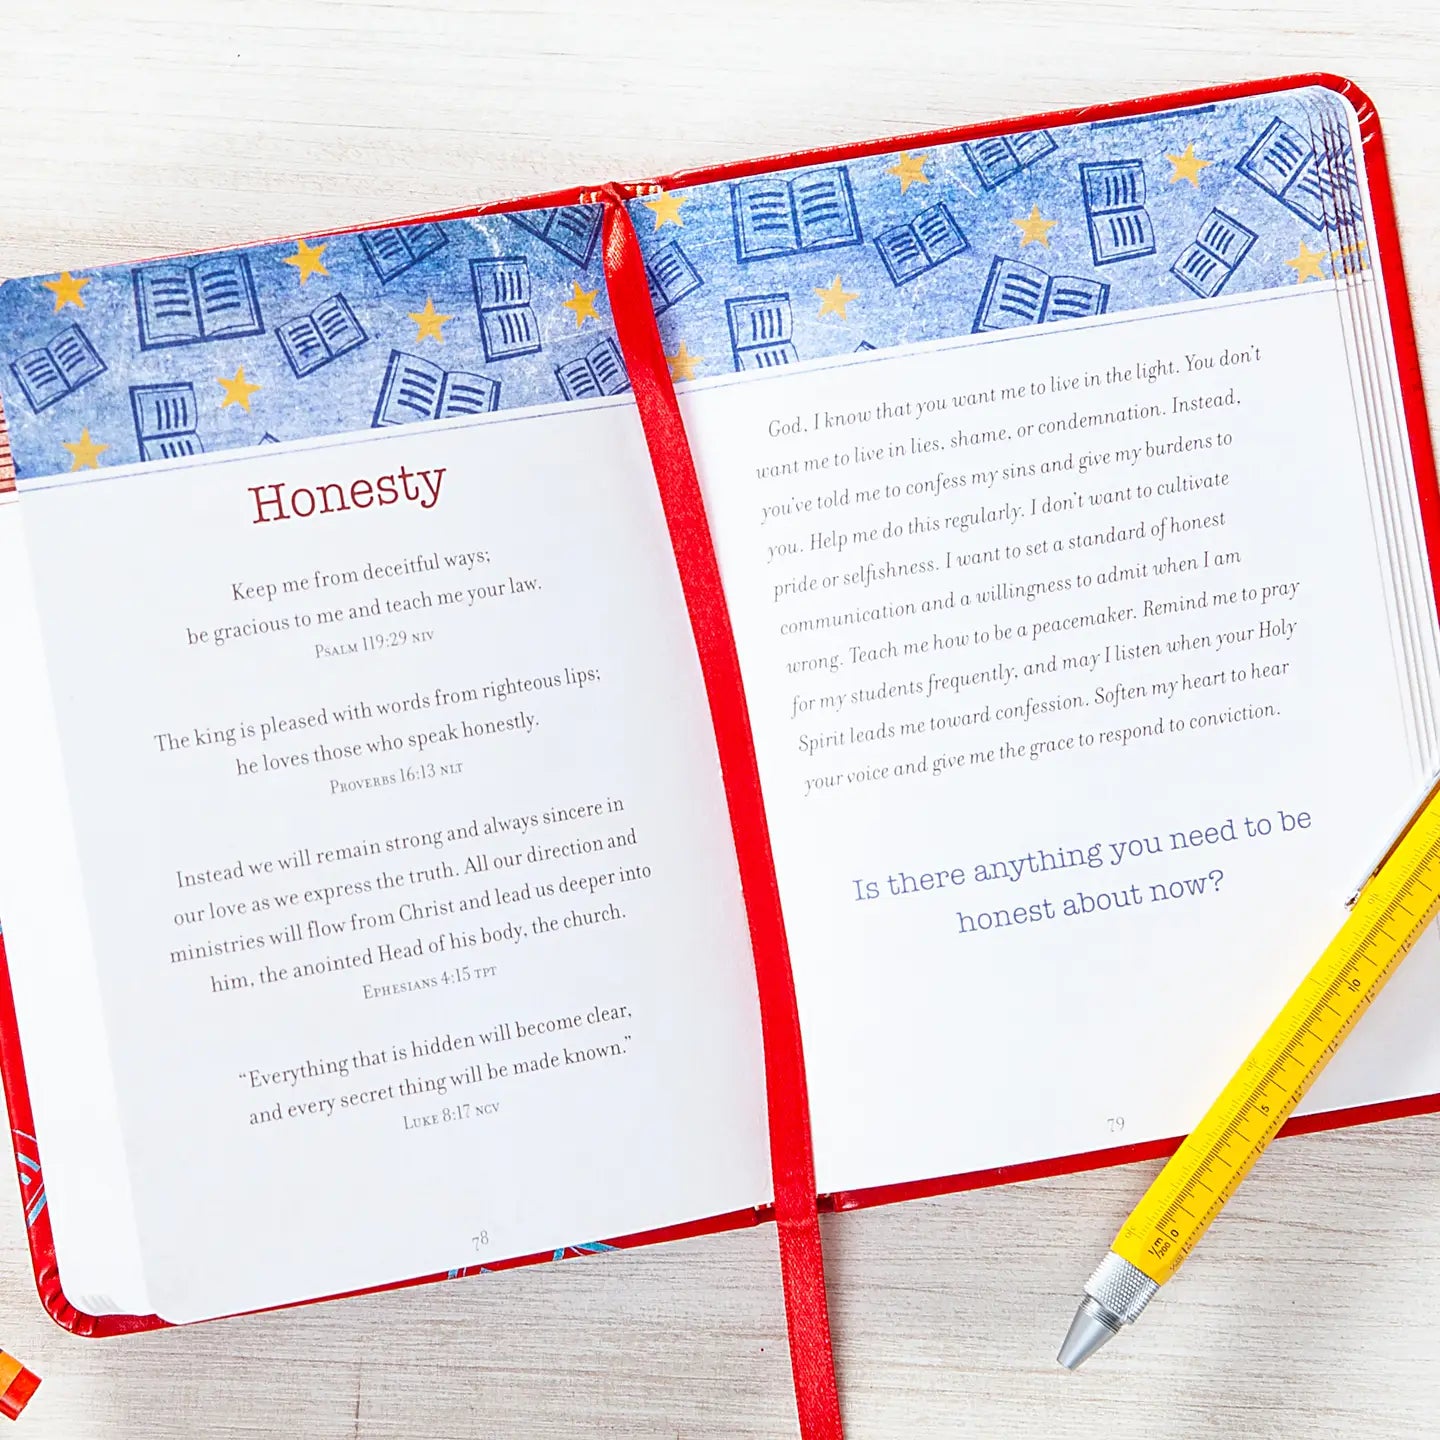 Honesty
Keep me from deceitful ways;
be gracious to me and teach me your law.
Psalm 119:29 NIV
The king is pleased with words from righteous lips;
he loves those who speak honestly.
Proverbs 16:13 NLT
Instead we will remain strong and always sincere in
our love as we express the truth. All our direction and
ministries will flow from Christ and lead us deeper into
him, the anointed Head of his body, the church.
Ephesians 4:15 TPT
“Everything that is hidden will become clear,
and every secret thing will be made known.”
Luke 8:17 NCV
78
God, I know that you want me to live in the light. You don’t
want me to live in lies, shame, or condemnation. Instead,
you’ve told me to confess my sins and give my burdens to
you. Help me do this regularly. I don’t want to cultivate
pride or selfishness. I want to set a standard of honest
communication and a willingness to admit when I am
wrong. Teach me how to be a peacemaker. Remind me to pray
for my students frequently, and may I listen when your Holy
Spirit leads me toward confession. Soften my heart to hear
your voice and give me the grace to respond to conviction.
Is there anything you need to be
honest about now?
79
1/m
200
0
5
10